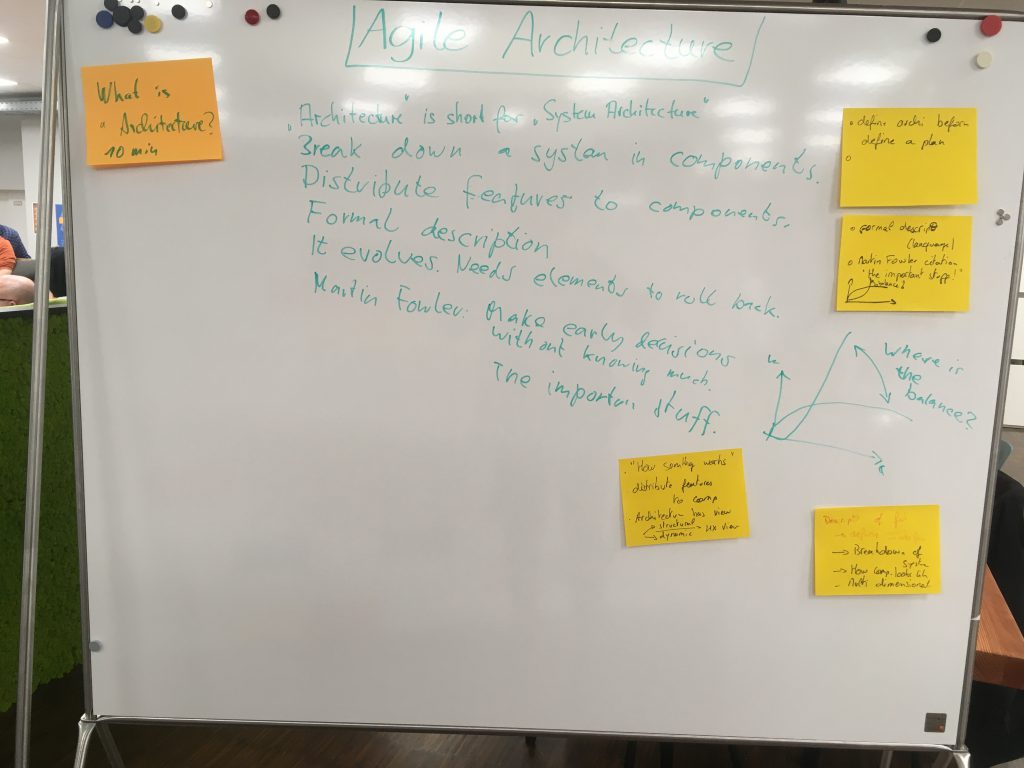 Agile Architecture
What is
Architecture?
10 min
„Architecture" is short for „System Architecture"
Break down a system in components.
Distribute features to components.
Formal description
It evolves. Needs elements to roll back.
Martin Fowler: Make early decisions
without knowing much.
The importan stuff.
Where is
the
balance?
define archi before
define a plan
Formal descrip
(language!
Martin Fowler citation
"the important stuff!"
"How somthing works"
distribute features
to comp
Architecture has view
structural
UX view
dynamic
of
Breakdown of
System
How comp. looks
Multi dimensional